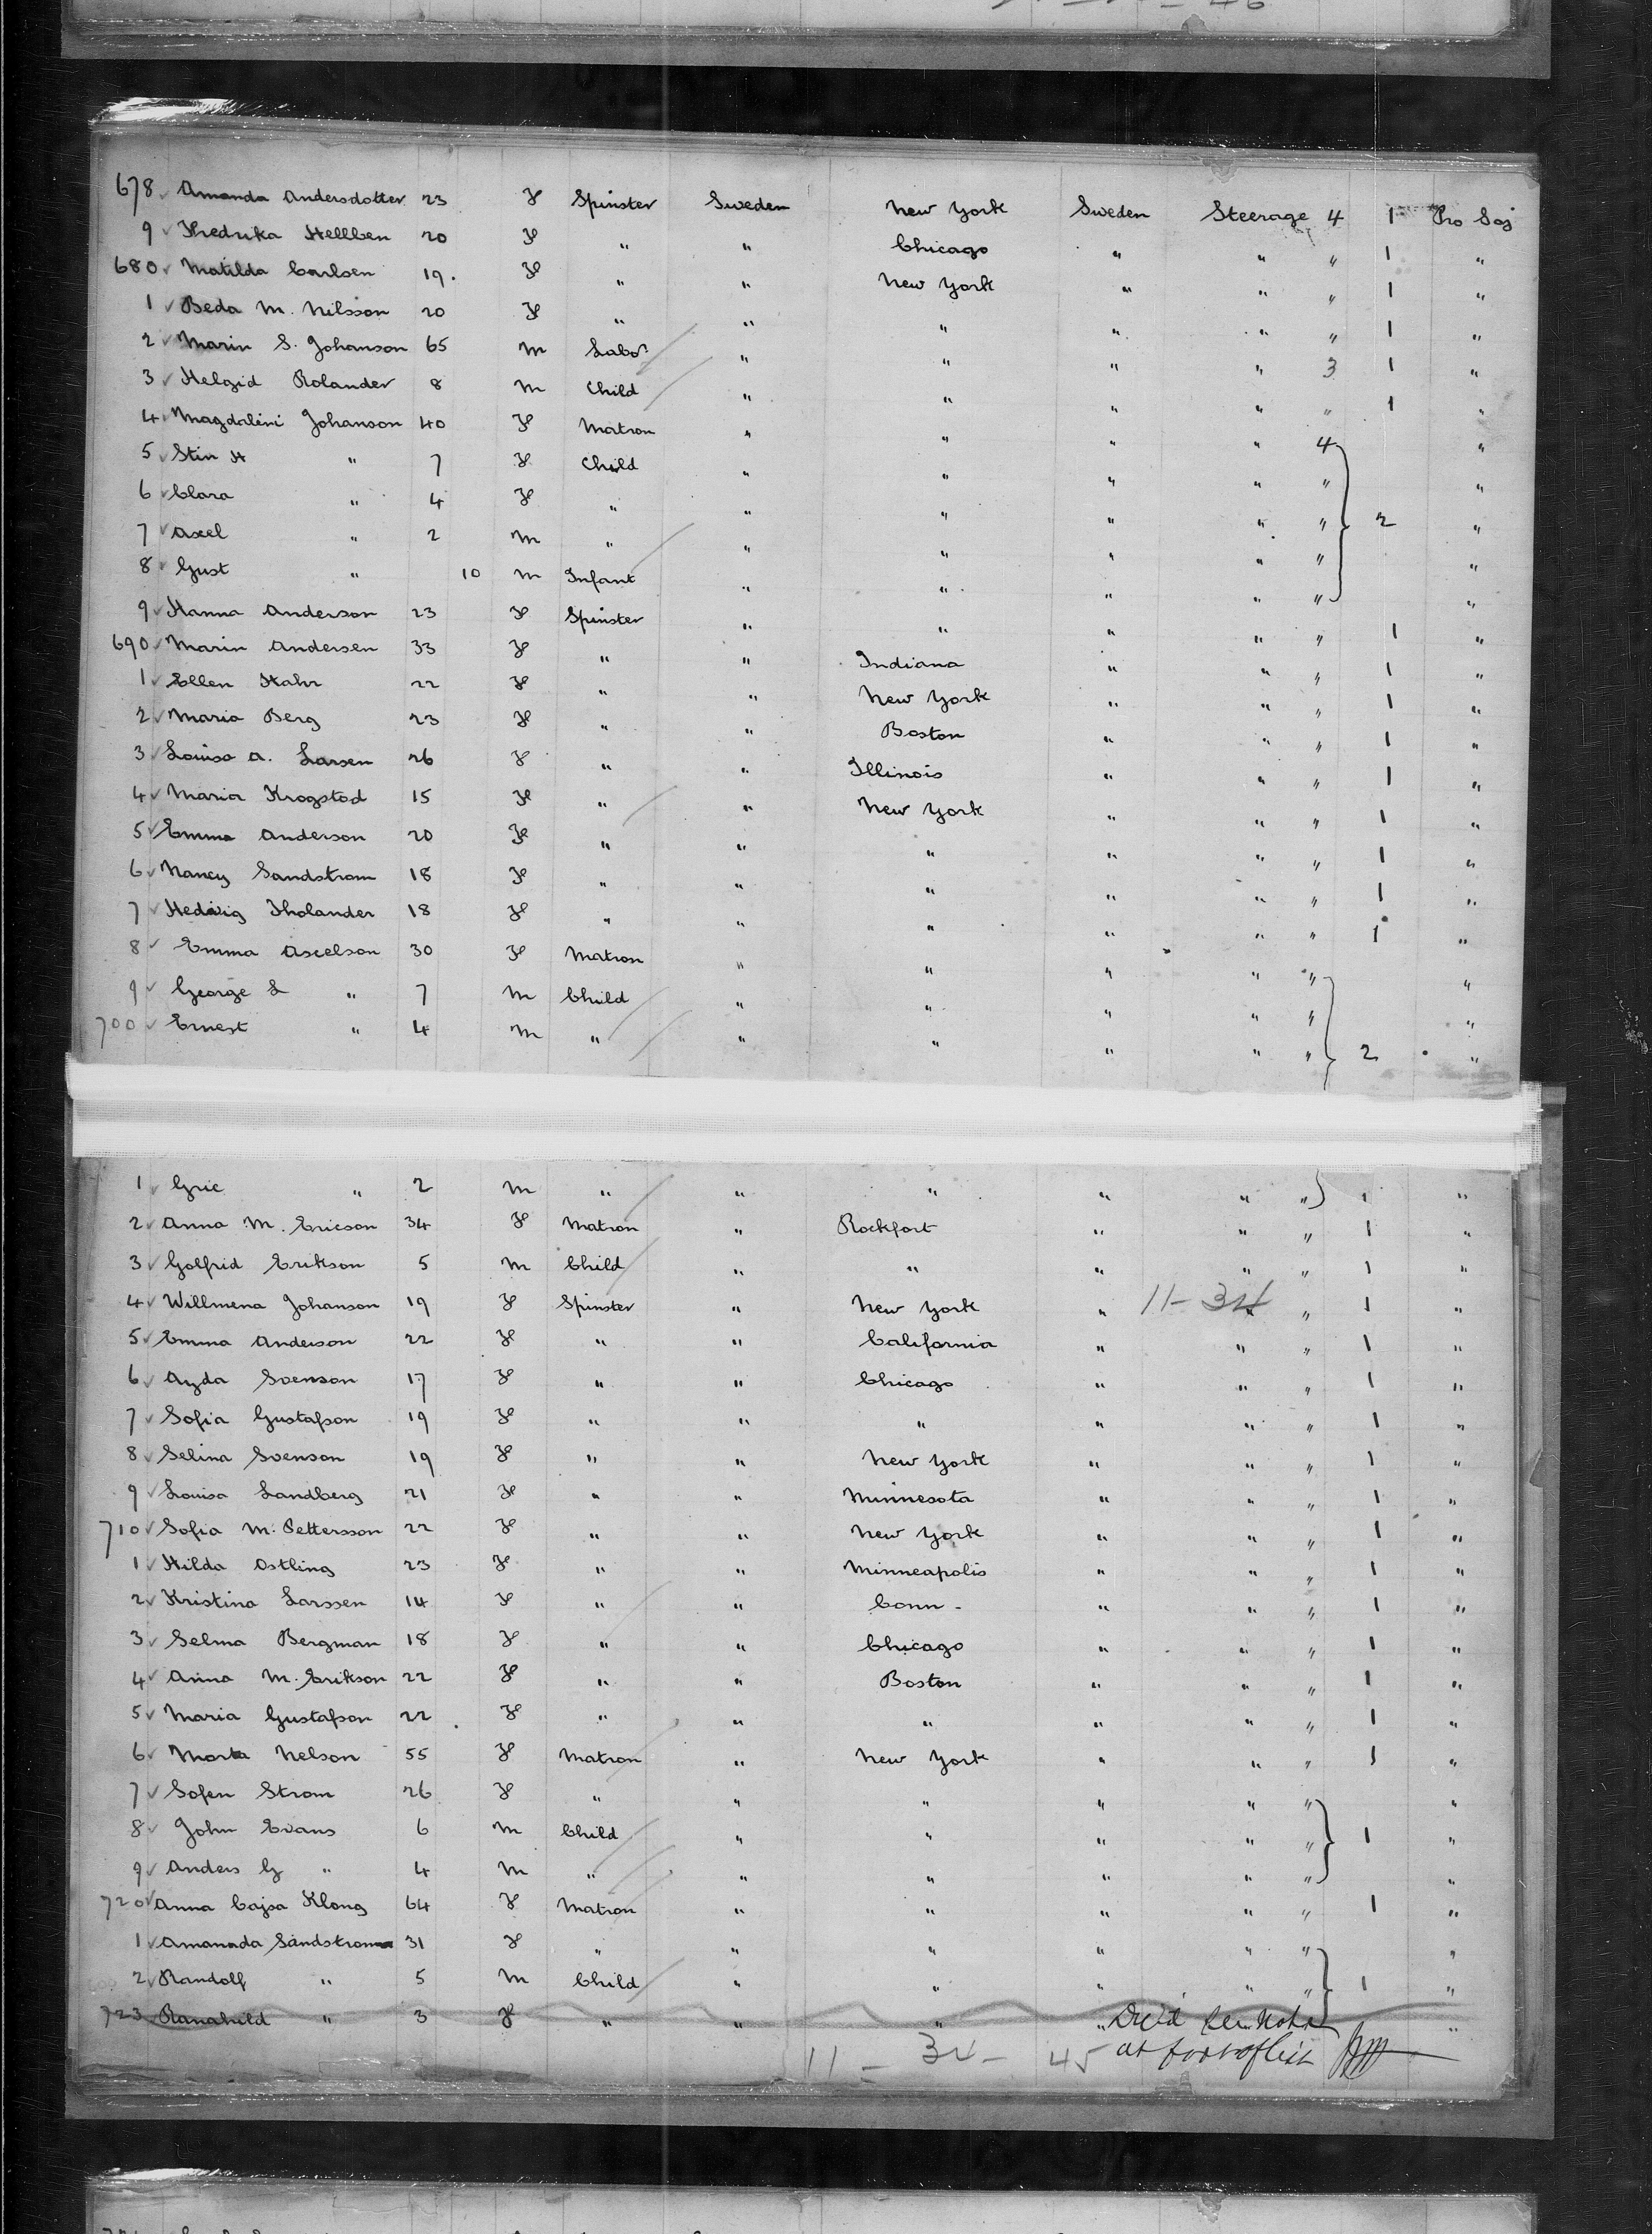 678 Amanda Andersdotter 23 F Spinster Sweden New York Sweden Steerage 4 1 Pro Soj
9 Fhedrika Hellben 20 F " " Chicago " " " 1 "
680 Matilda Carlsen 19. F " " New York " " " 1 "
1 Beda M. Nilsson 20 F " " " " " " 1 "
2 Marin S. Johanson 65 M Labor " " " " 3 1 "
3 Helgid Rolander 8 M Child " " " " " 1 "
4 Magdalini Johanson 40 F Matron " " " " 4 "
5 Stin H " 7 F Child " " " " " "
6 Clara " 4 F " " " " " " 2 "
7 Axel " 2 M " " " " " " "
8 Gust " 10 M Infant " " " " " "
9 Hanna Anderson 23 F Spinster " " " " " 1 "
690 Marin Andersen 33 F " " Indiana " " " 1 "
1 Ellen Hahr 22 F " " New York " " " 1 "
2 Maria Berg 23 F " " Boston " " " 1 "
3 Louisa A. Larsen 26 F " " Illinois " " " 1 "
4 Maria Krogstad 15 F " " New York " " " 1 "
5 Emma Anderson 20 F " " " " " " 1 "
6 Nancy Sandstrom 18 F " " " " " " 1 "
7 Hedvig Tholander 18 F " " " " " " 1 "
8 Emma Axelson 30 F Matron " " " " " "
9 George L " 7 M Child " " " " " "
700 Ernest " 4 M " " " " " " 2 "
1 Gric " 2 M " " " " " " "
2 Anna M. Ericson 34 F Matron " Rockfort " " " 1 "
3 Golfrid Erikson 5 M Child " " " " " 1 "
4 Willmena Johanson 19 F Spinster " New York " 11-34 " " 1 "
5 Emma Anderson 22 F " " California " " " 1 "
6 Ayda Svenson 17 F " " Chicago " " " 1 "
7 Sofia Gustafson 19 F " " " " " " 1 "
8 Selina Svenson 19 F " " New York " " " 1 "
9 Louisa Landberg 21 F " " Minnesota " " " 1 "
710 Sofia M. Pettersson 22 F " " New York " " " 1 "
1 Hilda Ostling 23 F " " Minneapolis " " " 1 "
2 Kristina Larssen 14 F " " Conn - " " " 1 "
3 Selma Bergman 18 F " " Chicago " " " 1 "
4 Anna M. Erikson 22 F " " Boston " " " 1 "
5 Maria Gustafson 22 F " " " " " " 1 "
6 Marta Nelson 55 F Matron " New York " " " 1 "
7 Sofen Strom 26 F " " " " " " "
8 John Evans 6 M Child " " " " " 1 "
9 Anders G " 4 M " " " " " " "
720 Anna Cajsa Klong 64 F Matron " " " " " 1 "
1 Amanada Sandstrom 31 F " " " " " " "
2 Randolf " 5 M Child " " " " " 1 "
723 Ranahild " 3 F " " " " Died see Note "
11 - 34 - 45 at foot of list